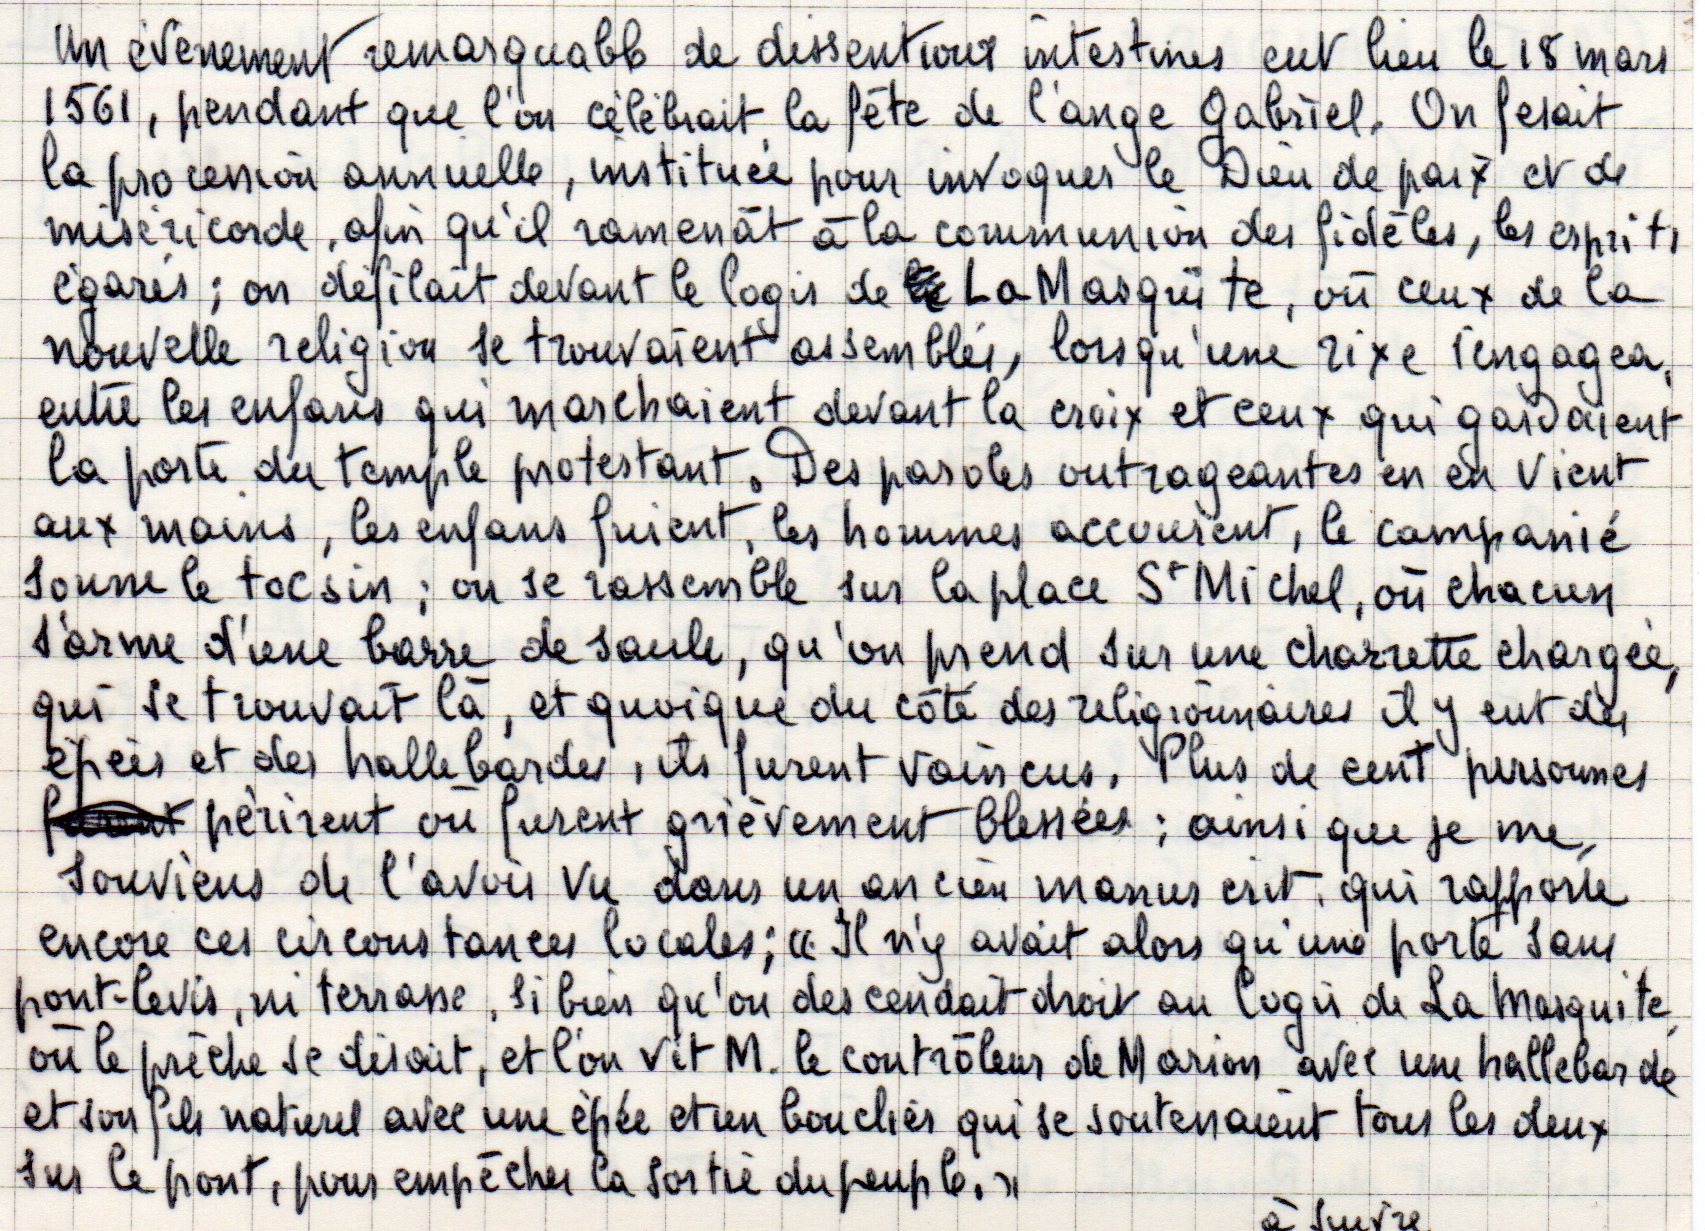 Un évènement remarquable de dissentions intestines eut lieu le 18 mars
1561, pendant que l'on célébrait la fête de l'ange Gabriel. On fesait
la procession annuelle, instituée pour invoquer le Dieu de paix et de
miséricorde, afin qu'il ramenât à la communion des fidèles, les esprits
égarés ; on défilait devant le logis de La Masquite, où ceux de la
nouvelle religion se trouvaient assemblés, lorsqu'une rixe s'engagea,
entre les enfans qui marchaient devant la croix et ceux qui gardaient
la porte du temple protestant. Des paroles outrageantes en en vient
aux mains, les enfans fuient, les hommes accourent, le campanié
sonne le tocsin ; on se rassemble sur la place St Michel, où chacun
s'arme d'une barre de saule, qu'on prend sur une charrette chargée,
qui se trouvait là, et quoique du côté des religionnaires il y eut des
épées et des hallebardes, ils furent vaincus. Plus de cent personnes
périrent ou furent grièvement blessées ; ainsi que je me,
souviens de l'avoir vu dans un ancien manuscrit, qui rapporte
encore ces circonstances locales; « Il n'y avait alors qu'une porte sans
pont-levis, ni terrasse, si bien qu'on descendait droit au logis de La Masquite,
où le prêche se disait, et l'on vit M. le contrôleur de Marion avec une hallebarde
et son fils naturel avec une épée et un bouclier qui se soutenaient tous les deux
sur le pont, pour empêcher la sortie du peuple. »
à suivre